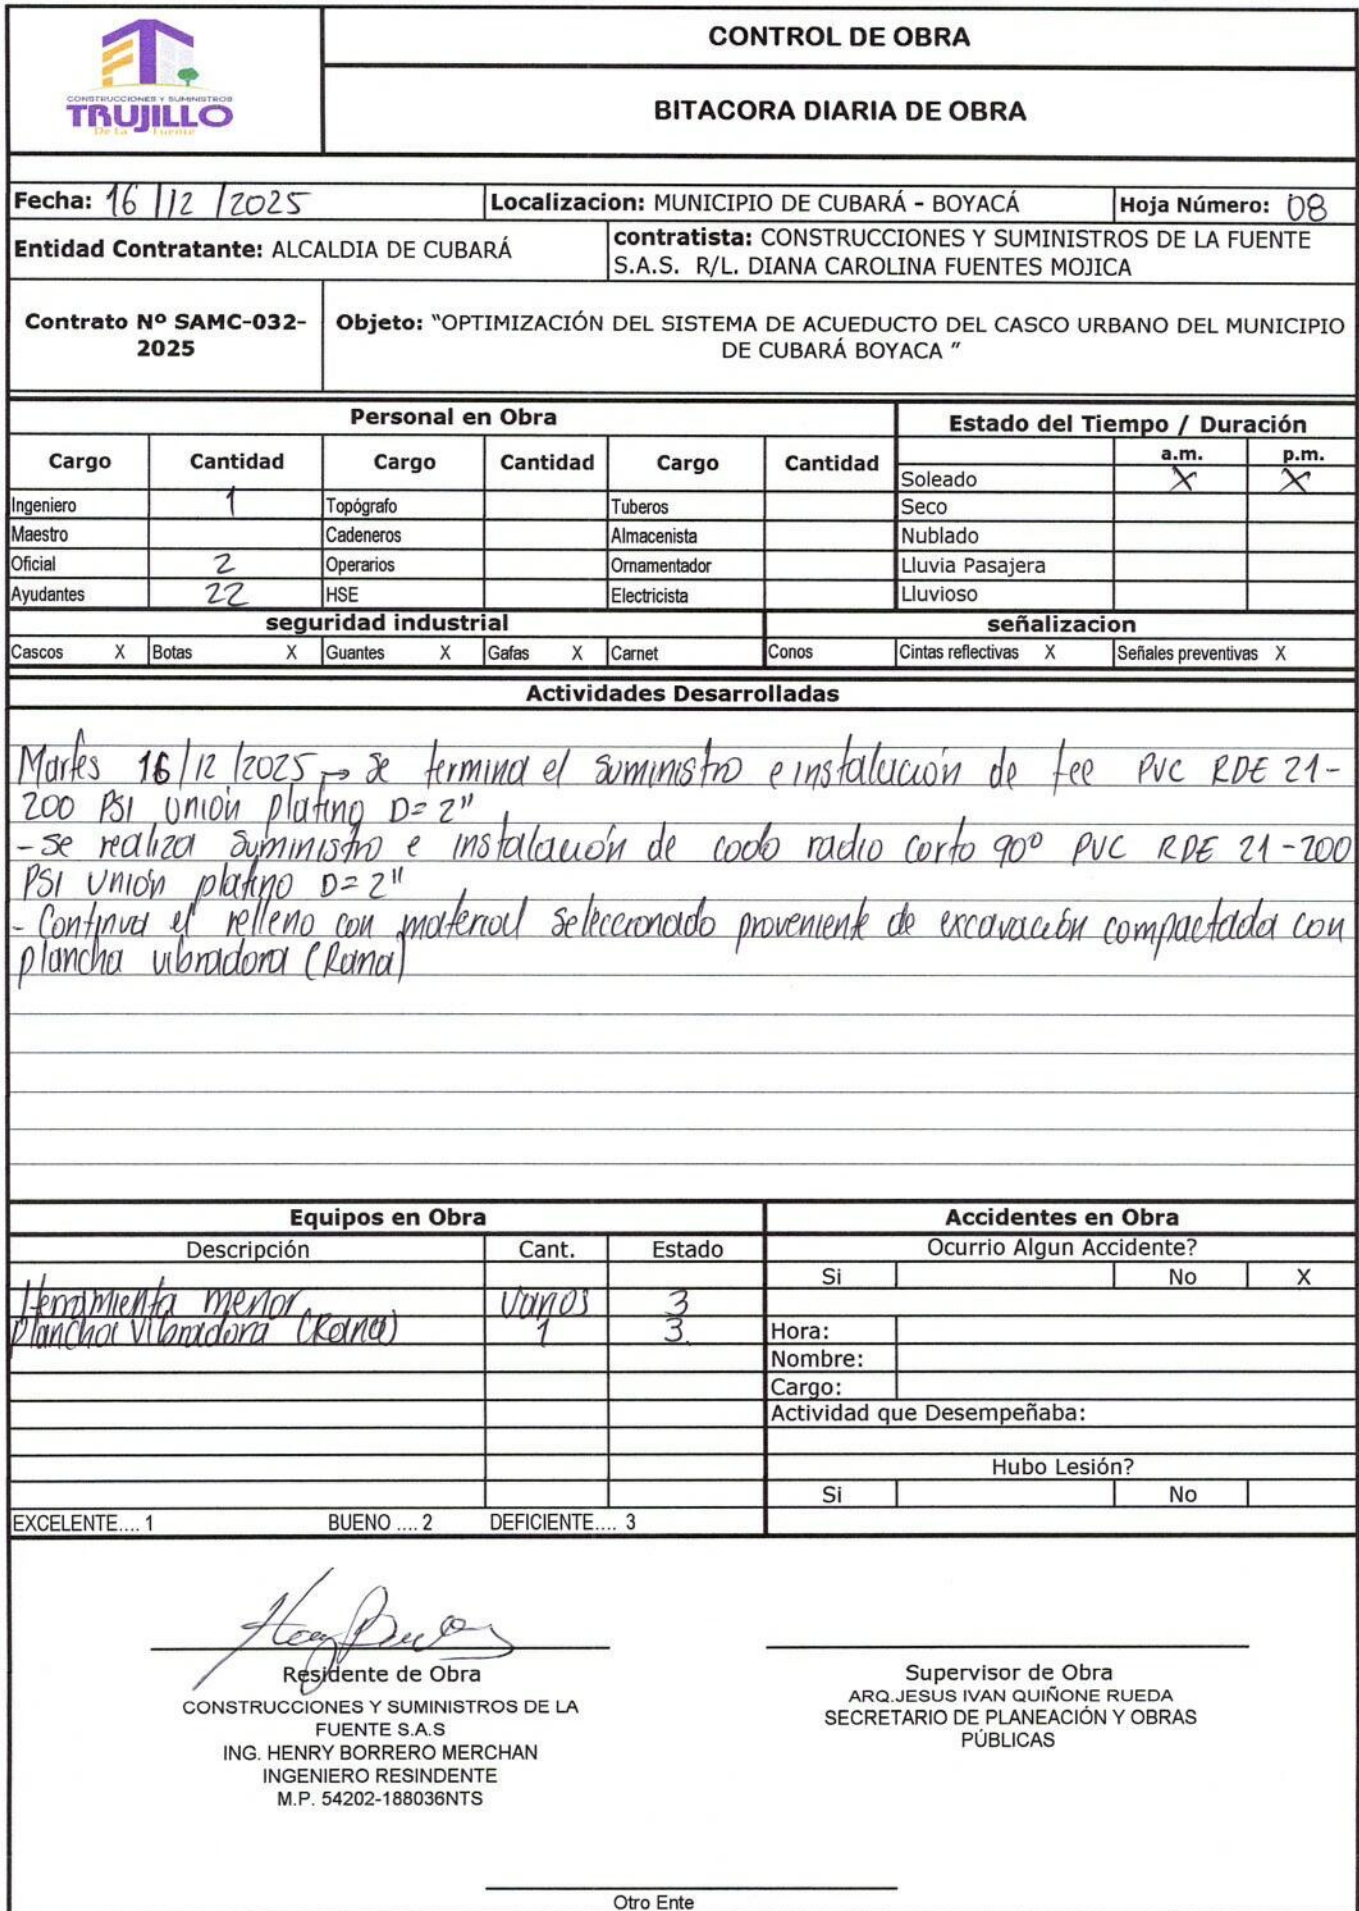 CONSTRUCCIONES Y SUMINISTROS
TRUJILLO
De La Fuente
CONTROL DE OBRA
BITACORA DIARIA DE OBRA
Fecha: 16/12/2025 Localizacion: MUNICIPIO DE CUBARÁ - BOYACÁ Hoja Número: 08
Entidad Contratante: ALCALDIA DE CUBARÁ
contratista: CONSTRUCCIONES Y SUMINISTROS DE LA FUENTE
S.A.S. R/L. DIANA CAROLINA FUENTES MOJICA
Contrato Nº SAMC-032-
2025
Objeto: "OPTIMIZACIÓN DEL SISTEMA DE ACUEDUCTO DEL CASCO URBANO DEL MUNICIPIO
DE CUBARÁ BOYACA "
Personal en Obra
Estado del Tiempo / Duración
Cargo Cantidad Cargo Cantidad Cargo Cantidad
a.m. p.m.
Soleado X X
Ingeniero 1 Topógrafo Tuberos Seco
Maestro Cadeneros Almacenista Nublado
Oficial 2 Operarios Ornamentador Lluvia Pasajera
Ayudantes 22 HSE Electricista Lluvioso
seguridad industrial señalizacion
Cascos X Botas X Guantes X Gafas X Carnet Conos Cintas reflectivas X Señales preventivas X
Actividades Desarrolladas
Martes 16/12/2025 → se termina el suministro e instalación de tee PVC RDE 21-
200 PSI unión platino D= 2"
- se realiza suministro e instalación de codo radio corto 90° PVC RDE 21-200
PSI Unión platino D= 2"
- Continua el relleno con material seleccionado proveniente de excavación compactada con
plancha vibradora (Rana)
Equipos en Obra Accidentes en Obra
Descripción Cant. Estado Ocurrio Algun Accidente?
Si No X
Herramienta menor varios 3
plancha vibradora (Rana) 1 3. Hora:
Nombre:
Cargo:
Actividad que Desempeñaba:
Hubo Lesión?
Si No
EXCELENTE.... 1 BUENO .... 2 DEFICIENTE.... 3
Residente de Obra
CONSTRUCCIONES Y SUMINISTROS DE LA
FUENTE S.A.S
ING. HENRY BORRERO MERCHAN
INGENIERO RESINDENTE
M.P. 54202-188036NTS
Supervisor de Obra
ARQ.JESUS IVAN QUIÑONE RUEDA
SECRETARIO DE PLANEACIÓN Y OBRAS
PÚBLICAS
Otro Ente